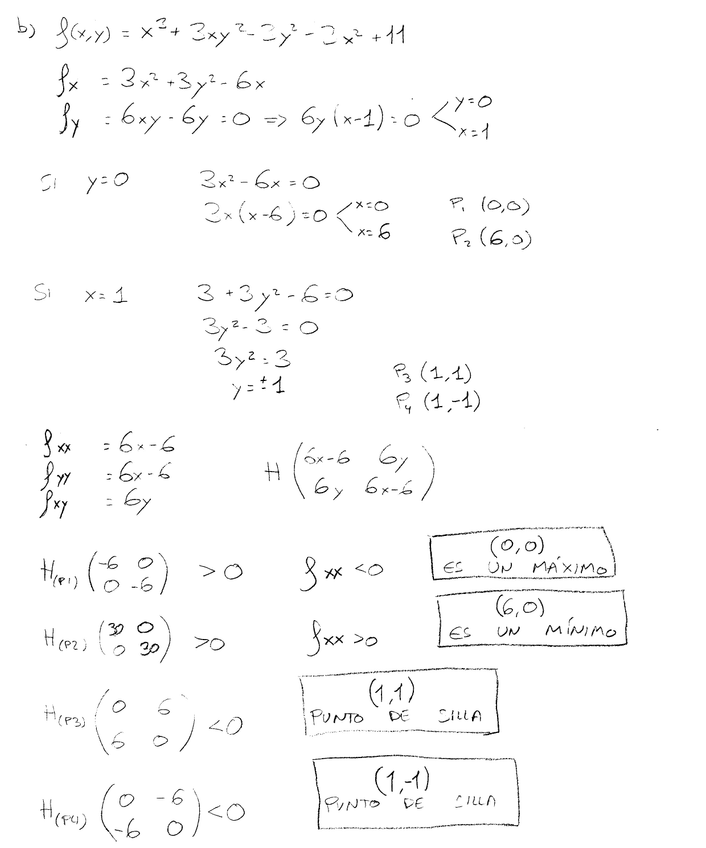 b) f(x,y) = x³ + 3xy² - 3y² - 3x² + 11
fx = 3x² + 3y² - 6x
fy = 6xy - 6y = 0 => 6y(x-1) = 0 < y=0
x=1
Si y=0 3x² - 6x = 0
3x(x-6) = 0 < x=0 P₁ (0,0)
x=6 P₂ (6,0)
Si x=1 3 + 3y² - 6 = 0
3y² - 3 = 0
3y² = 3
y = ±1
P₃ (1,1)
P₄ (1,-1)
fxx = 6x-6
fyy = 6x-6
fxy = 6y
H (6x-6 6y
6y 6x-6)
H(P1) (-6 0
0 -6) >0 fxx <0
(0,0)
ES UN MÁXIMO
H(P2) (30 0
0 30) >0 fxx >0
(6,0)
ES UN MÍNIMO
H(P3) (0 6
6 0) <0
(1,1)
PUNTO DE SILLA
H(P4) (0 -6
-6 0) <0
(1,-1)
PUNTO DE SILLA